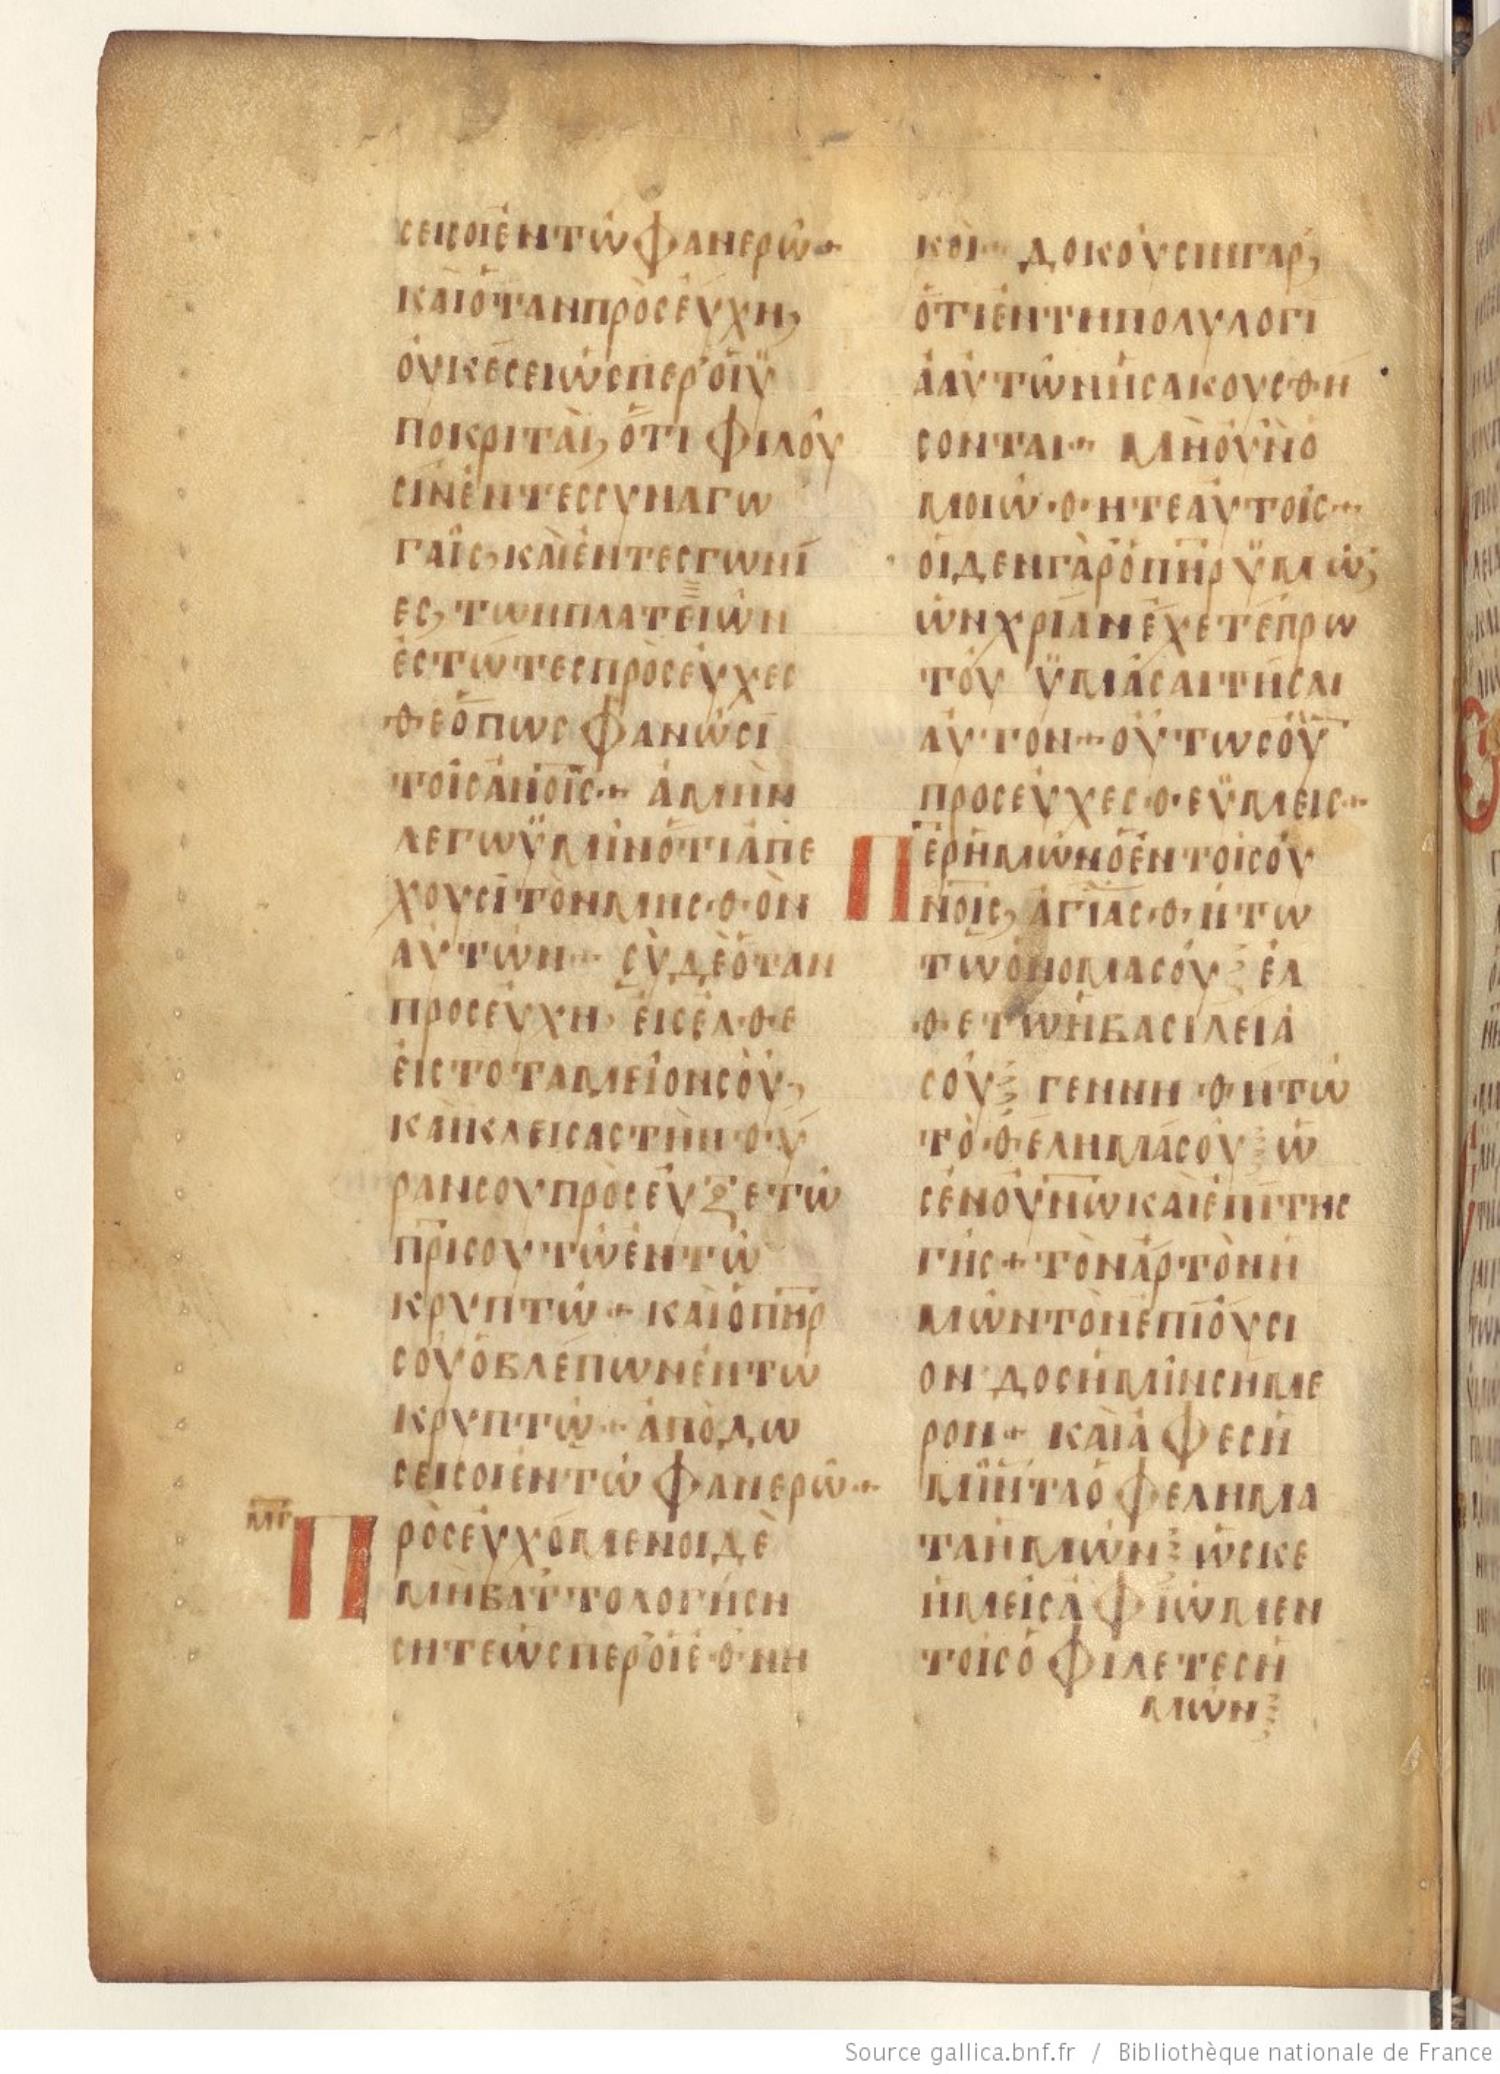 σεισοιἐντῶφανερῶ+
καιὅτανπρὸσεύχη,
ὀυκἐσειὡσπερ᾽ὁιϋ
ποκριται, ὅτι φιλου
σινἐντεσσυναγω
γαῖς, καιἐντεσγωνί
ες, τωνπλατειῶν
ἑστῶτεσπρὸσεύχεσ
θεὅπωσ φανῶσῑ
τοῖσἀν̅ο̅ῑσ̅·+ ἀμὴν
λεγωϋμῖνὅτιἀπε
χουσῑτὸνμισθὸν
αὐτῶν·+ σὺδὲὅταν
προσεύχη, ἐισελθε
ἐιστοταμεῖονσὸυ,
καικλεισαστὴνθύ
ρανσουπρὸσεύξετῶ
π̅ρ̅ῑσουτῶἐντῶ
κρυπτῶ·+ καιὁπ̅η̅ρ̅
σουὁβλέπωνἐντῶ
κρυπτῶ·+ ἀπὸδω
σεισοιἐντῶ φανερῶ·+
μ̅γ̅
Πρὸσευχὸμενοιδὲ
μὴβαττολογήση
σητεὡσπερ᾽ὁιἐθνη
κὸι·+ δοκοὺσινγαρ,
ὅτιἐντηπολυλογί
ἁαὐτῶνἠσακουσθη
σονται·+ Μὴοὐνὁ
μοιώθητεἀυτοῖσ·+
οῖδενγὰρὁπ̅η̅ρ̅ ϋμῶ,
ὡνχρίανἔχετέπρω
τόυ ϋμᾶσαιτῆσαι
αὐτον·+ὁύτωσὀυ̅
προσεύχεσθεϋμεῖσ·+
Π̅ε̅ρ̅ἡμῶνὁἐντοῖσὀυ
ν̅ο̅ῑς̅, ἁγιἁσθήτω
τωὄνομασόυ ἐλ
θετωἡβασιλεία
σόυ γεννηθήτώ
τὸθέλημασόυ ὡ
σἐνοὐν̅ω̅καιἐπιτησ
γῆς + τὸνἄρτὸνἡ
μῶντὸνἐπιόυσι
ον δοσἡμῖνσημε
ρον + καιἄφεσἡ
μῖνταὀφελημα
ταἡμῶν ὡσκε
ἡμεῖσἀφίωμεν
τοῖσὀφιλετεσἡ
μῶν
Source gallica.bnf.fr / Bibliothèque nationale de France